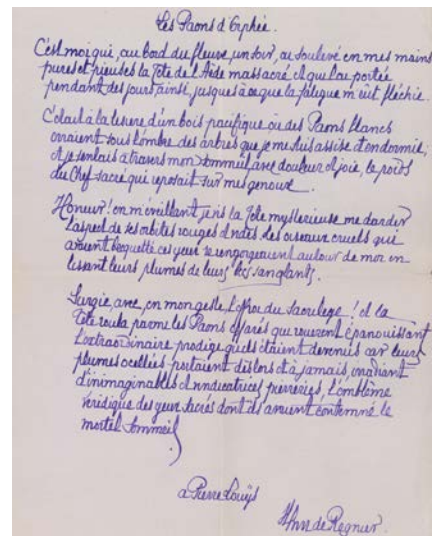 Les Paons d'Orphée.
C'est moi qui, au bord du fleuve, un soir, ai soulevé en mes mains
pures et pieuses la Tête de l'Aède massacré et qui l'ai portée
pendant des jours ainsi, jusques à ce que la fatigue m'eût fléchie.
C'était à la lisière d'un bois pacifique où des Paons blancs
erraient sous l'ombre des arbres que je me suis assise et endormie,
et je sentais à travers mon sommeil avec douleur et joie, le poids
du Chef sacré qui reposait sur mes genoux.
Horreur! en m'éveillant je vis la Tête mystérieuse me darder
l'aspect de ses orbites rouges et vides. Les oiseaux cruels qui
avaient becquetté ces yeux se rengorgeaient autour de moi en
lissant leurs plumes de leurs becs sanglants.
Surgie, avec, en mon geste, l'effroi du sacrilège! et la
Tête roula parmi les Paons effarés qui rouèrent épanouissant
l'extraordinaire prodige qu'ils étaient devenus car leurs
plumes ocellées portaient dès lors et à jamais, irradiant
d'inimaginables et vindicatrices pierreries, l'emblème
véridique des yeux sacrés dont ils avaient contemné le
mortel Sommeil
à Pierre Louÿs
H. de Regnier.